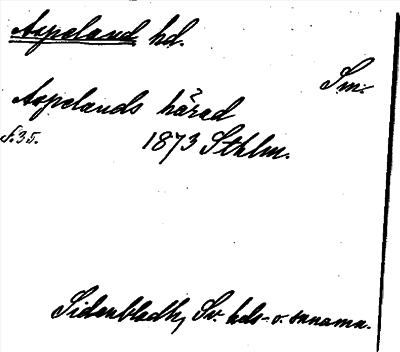 Aspeland hd.
Sm.
Aspelands härad
s. 35. 1873 Sthlm.
Sidenbladh, Sv. hds- o. snamn.